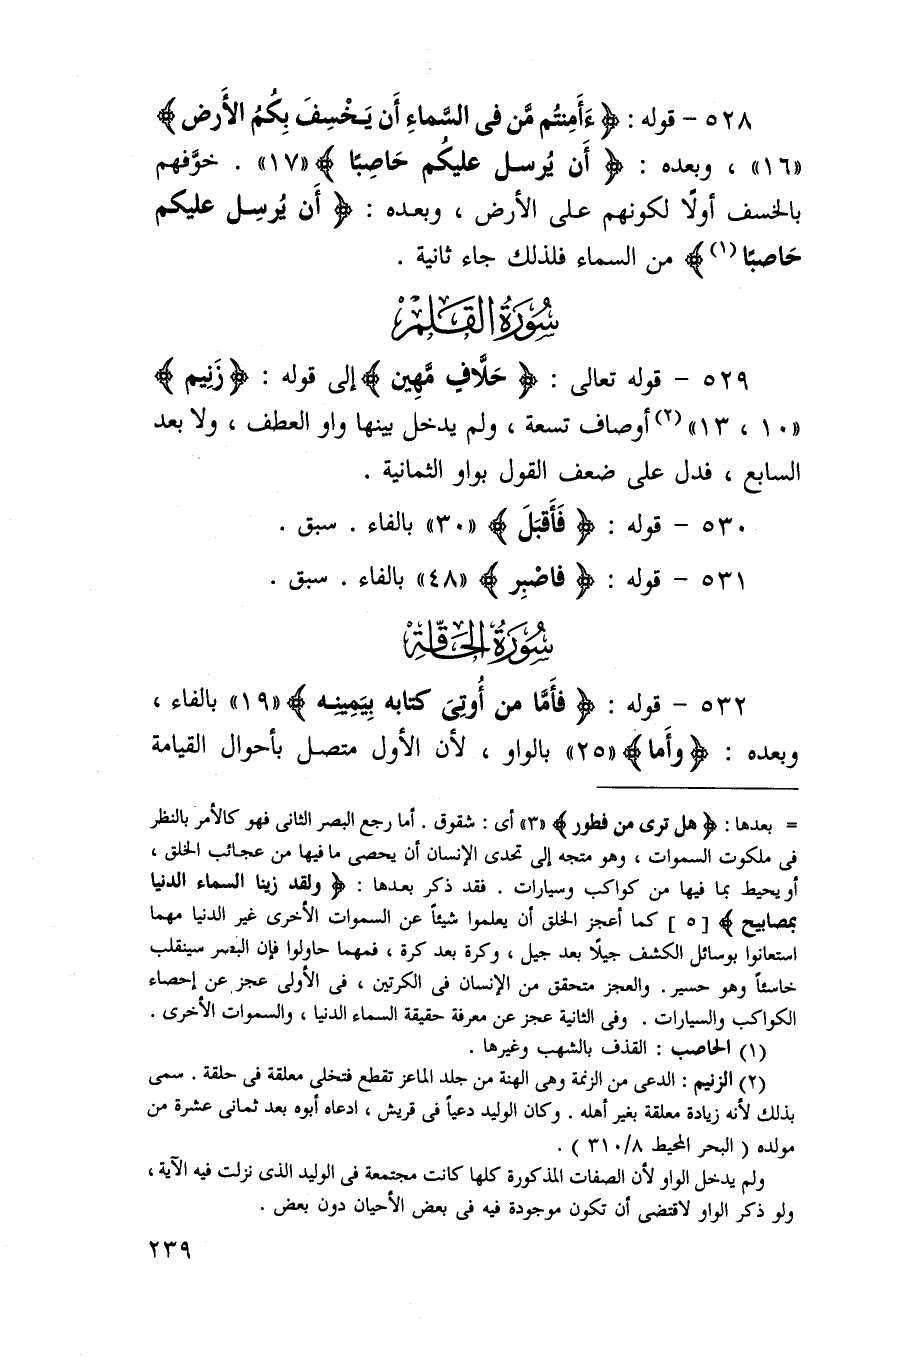 ٥٢٨ – قوله : ﴿ ءَأَمِنتُم مَّن فى السَّماءِ أَن يَخْسِفَ بِكُمُ الأَرض ﴾
«١٦» ، وبعده : ﴿ أَن يُرسل عليكُم حَاصِبًا ﴾ «١٧» . خوَّفهم
بالخسف أولًا لكونهم على الأرض ، وبعده : ﴿ أَن يُرسِل عليكم
حَاصبًا (١) ﴾ من السماء فلذلك جاء ثانية .
سُورَةُ القَلَمْ
٥٢٩ – قوله تعالى : ﴿ حَلَّافٍ مَّهِين ﴾ إلى قوله : ﴿ زَنِيم ﴾
«١٠ ، ١٣» (٢) أوصاف تسعة ، ولم يدخل بينها واو العطف ، ولا بعد
السابع ، فدل على ضعف القول بواو الثمانية .
٥٣٠ – قوله : ﴿ فَأَقبَلَ ﴾ «٣٠» بالفاء . سبق .
٥٣١ – قوله : ﴿ فاصْبِر ﴾ «٤٨» بالفاء . سبق .
سُورَةُ الحَاقَّة
٥٣٢ – قوله : ﴿ فأَمَّا من أُوتِىَ كتابه بِيَمِينِه ﴾ «١٩» بالفاء ،
وبعده : ﴿ وأَما ﴾ «٢٥» بالواو ، لأن الأول متصل بأحوال القيامة
= بعدها : ﴿ هل ترى من فطور ﴾ «٣» أى : شقوق . أما رجع البصر الثانى فهو كالأمر بالنظر
فى ملكوت السموات ، وهو متجه إلى تحدى الإنسان أن يحصى ما فيها من عجائب الخلق ،
أو يحيط بما فيها من كواكب وسيارات . فقد ذكر بعدها : ﴿ ولقد زينا السماء الدنيا
بمصابيح ﴾ [ ٥ ] كما أعجز الخلق أن يعلموا شيئاً عن السموات الأخرى غير الدنيا مهما
استعانوا بوسائل الكشف جيلًا بعد جيل ، وكرة بعد كرة ، فمهما حاولوا فإن البصر سينقلب
خاسئاً وهو حسير . والعجز متحقق من الإنسان فى الكرتين ، فى الأولى عجز عن إحصاء
الكواكب والسيارات . وفى الثانية عجز عن معرفة حقيقة السماء الدنيا ، والسموات الأخرى .
(١) الحاصب : القذف بالشهب وغيرها .
(٢) الزنيم : الدعى من الزنمة وهى الهنة من جلد الماعز تقطع فتخلى معلقة فى حلقة . سمى
بذلك لأنه زيادة معلقة بغير أهله . وكان الوليد دعياً فى قريش ، ادعاه أبوه بعد ثمانى عشرة من
مولده ( البحر المحيط ٣١٠/٨ ) .
ولم يدخل الواو لأن الصفات المذكورة كلها كانت مجتمعة فى الوليد الذى نزلت فيه الآية ،
ولو ذكر الواو لاقتضى أن تكون موجودة فيه فى بعض الأحيان دون بعض .
٢٣٩